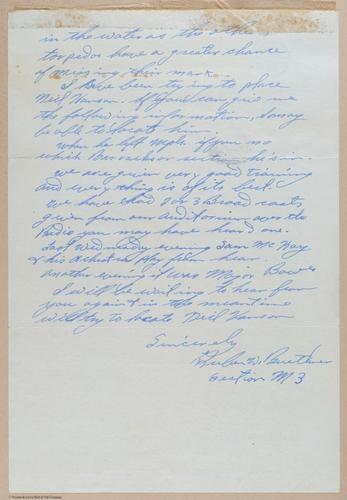 in the water as the other
torpedos have a greater chance
of missing their mark.
I have been trying to place
Neil Hanson. If you can give me
the following information, I may
be able to locate him.
When he left Mpls. if you no
which Barracks or section he's in.
We are given very good training
and every thing is of its best.
We have had 2 or 3 Broad casts
given from our Auditorium over the
Radio you may have heard one.
Last Wednesday evening Sam McKay
& his Orchestra play from hear.
Another evening it was Major Bowes
I will be waiting to hear from
you again in the meantime
will try to locate Neil Hanson
Sincerely
W. Buethner
Section M 3